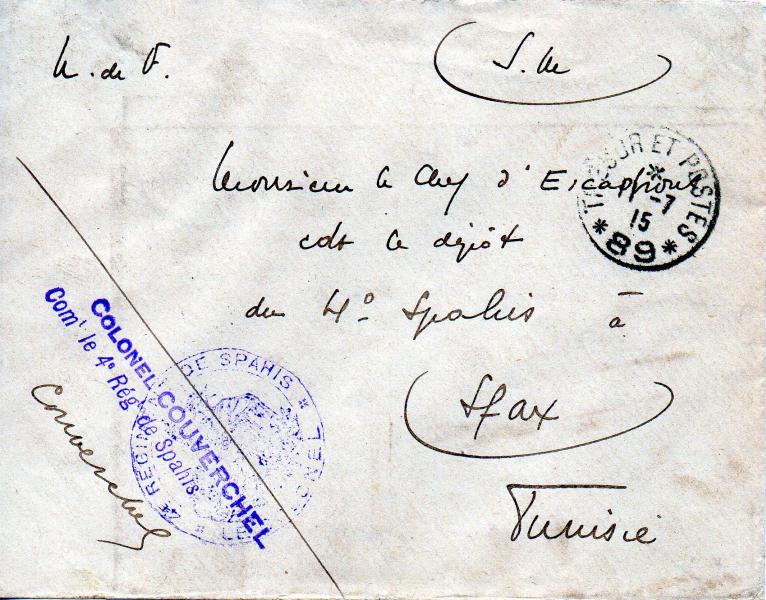 S. M
Monsieur le Chef d'Escadrons
cdt le dépôt
du 4º Spahis à
Sfax
Tunisie
TRÉSOR ET POSTES
-7
15
* 89 *
COLONEL COUVERCHEL
Comt le 4e Régt de Spahis
4e REGIMENT DE SPAHIS * LE COLONEL *
Couverchel